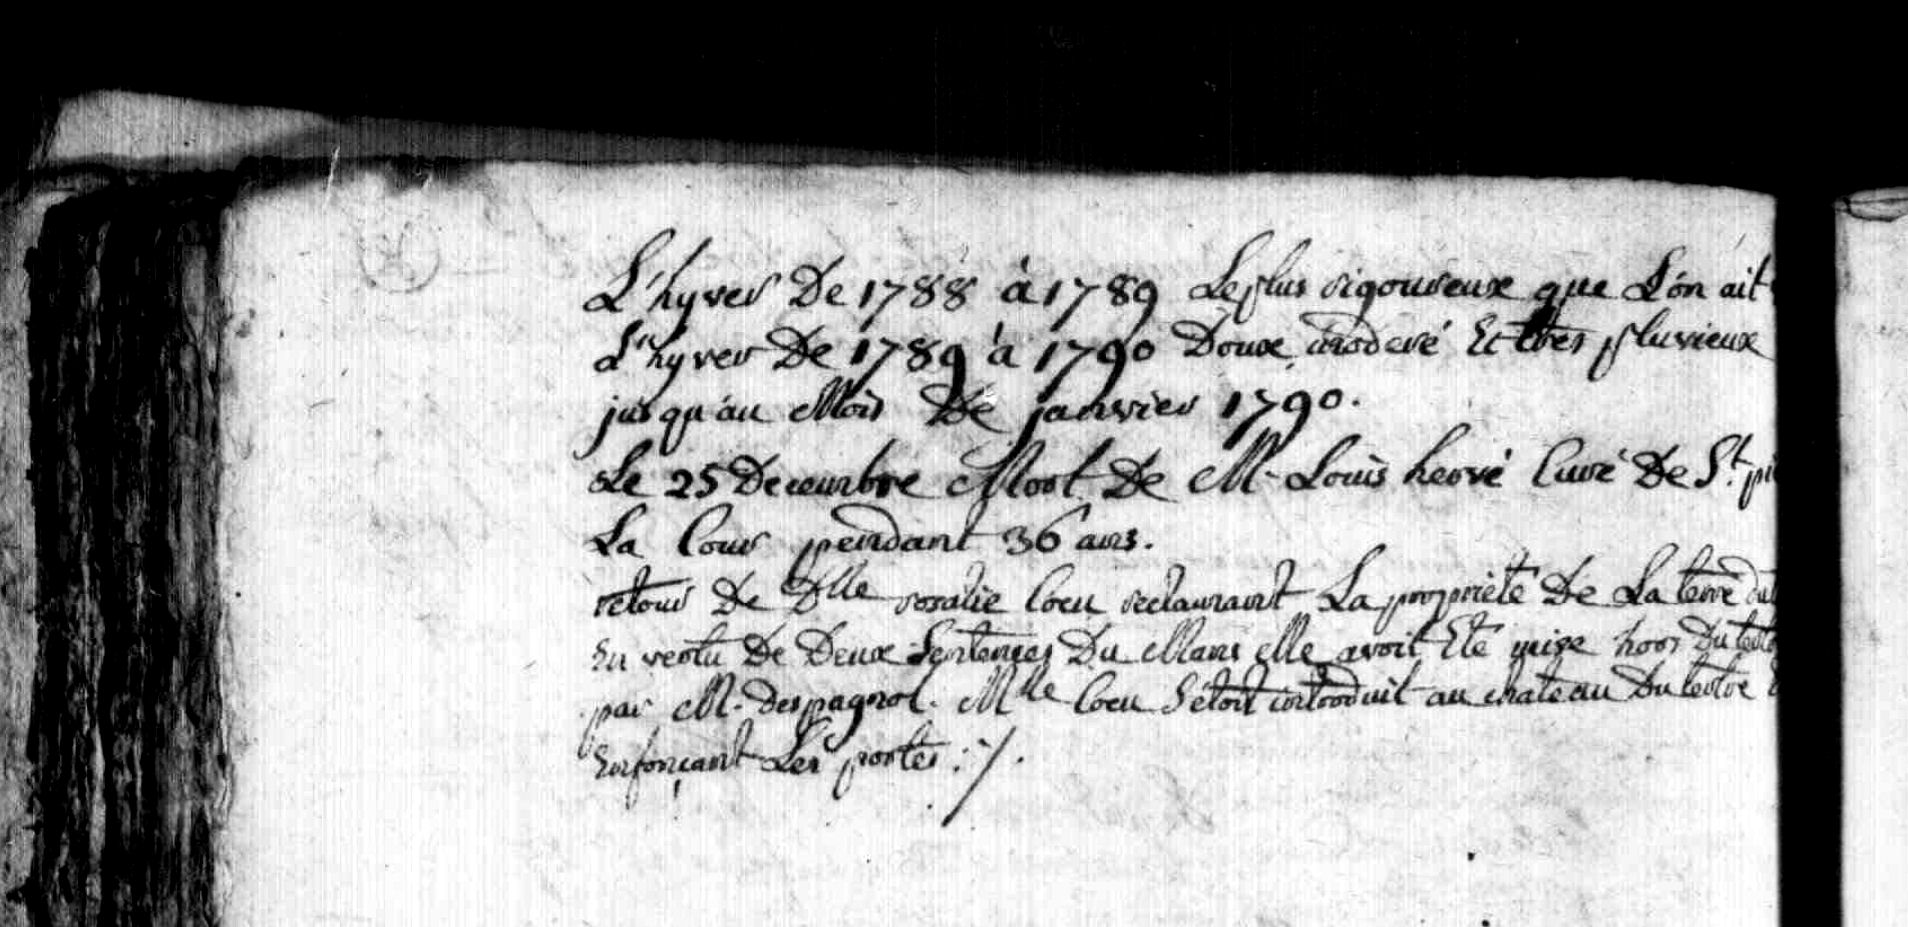 L'hyver De 1788 à 1789 Le plus rigoureux que L'on ait
L'hyver De 1789 à 1790 Doux, moderé Et tres pluvieux
jusqu'au Mois De janvier 1790.
Le 25 Decembre Mort De M. Louis hervé Curé De St. pi
La Cour pendant 36 ans.
retour De Dlle rosalie Coeu reclamant La proprieté De La terre du
En vertu De Deux Sentences Du Mans elle avoit Eté mise hors Du tertre
par M. despagnol. Mlle Coeu S'étoit introduit au chateau Du tertre
Enfonçant Les portes :/.